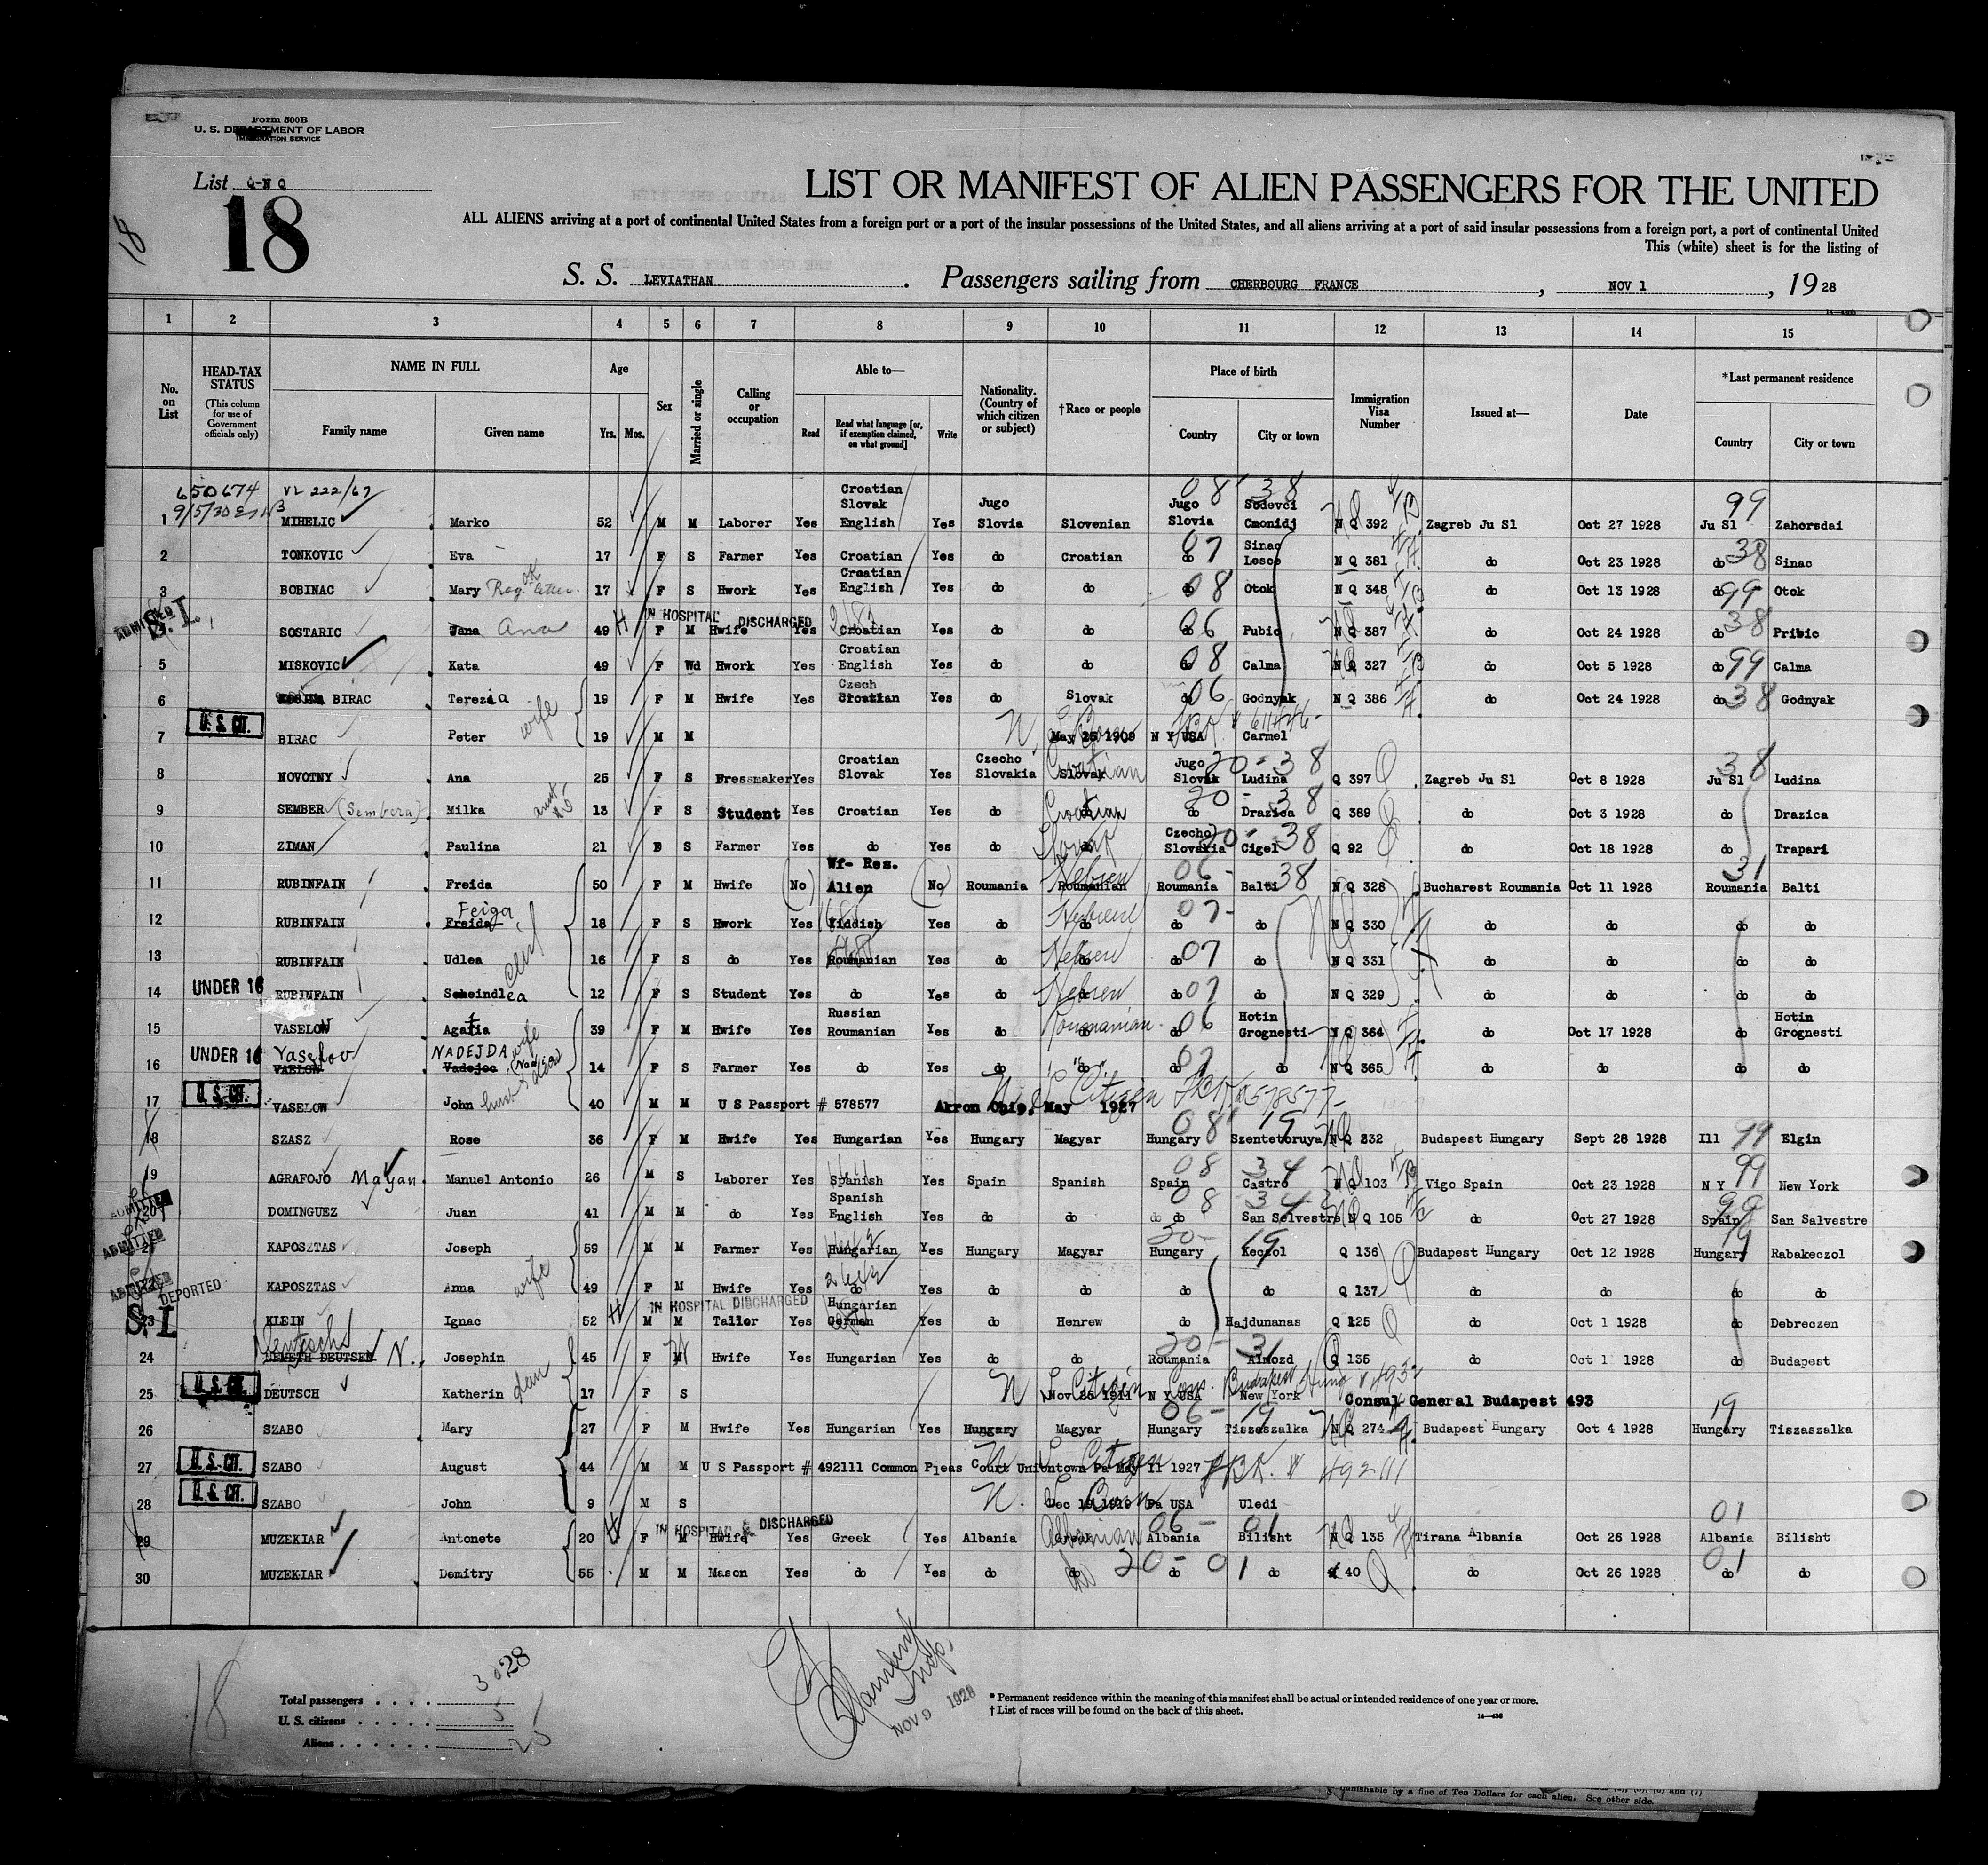 Form 500B
U. S. DEPARTMENT OF LABOR
IMMIGRATION SERVICE
List Q-N Q
18
18
LIST OR MANIFEST OF ALIEN PASSENGERS FOR THE UNITED
ALL ALIENS arriving at a port of continental United States from a foreign port or a port of the insular possessions of the United States, and all aliens arriving at a port of said insular possessions from a foreign port, a port of continental United
This (white) sheet is for the listing of
S. S. LEVIATHAN . Passengers sailing from CHERBOURG FRANCE , NOV 1 , 19 28
1 2 3 4 5 6 7 8 9 10 11 12 13 14 15
No. on List
HEAD-TAX STATUS (This column for use of Government officials only)
NAME IN FULL Family name Given name
Age Yrs. Mos.
Sex
Married or single
Calling or occupation
Able to— Read Read what language [or, if exemption claimed, on what ground] Write
Nationality. (Country of which citizen or subject)
†Race or people
Place of birth Country City or town
Immigration Visa Number
Issued at—
Date
*Last permanent residence Country City or town
650674 VL 222/67
1 MIHELIC Marko 52 M M Laborer Yes Croatian Slovak English Yes Jugo Slovia Slovenian 08 Jugo Slovia 38 Sodevci Cmonidj N Q 392 Zagreb Ju Sl Oct 27 1928 99 Ju Sl Zahorsdai
2 TONKOVIC Eva 17 F S Farmer Yes Croatian Yes do Croatian 07 do Sinac Lesce N Q 381 do Oct 23 1928 do 38 Sinac
3 BOBINAC Mary 17 F S Hwork Yes Croatian English Yes do do do 08 Otok N Q 348 do Oct 13 1928 do 99 Otok
ADMITTED S.I. SOSTARIC Jana Ana 49 H F M Hwife IN HOSPITAL DISCHARGED Yes Croatian Yes do do 06 Pubic N Q 387 do Oct 24 1928 do 38 Pribic
5 MISKOVIC Kata 49 F Wd Hwork Yes Croatian English Yes do do do 08 Calma N Q 327 do Oct 5 1928 do 99 Calma
6 BIRAC Terezia wife 19 F M Hwife Yes Czech Croatian Yes do Slovak do 06 Godnyak N Q 386 do Oct 24 1928 do 38 Godnyak
7 U. S. CIT. BIRAC Peter 19 M M May 25 1909 N Y USA Carmel
8 NOVOTNY Ana 25 F S Dressmaker Yes Croatian Slovak Yes Czecho Slovakia Slovak Croatian Jugo Slovak 20 - 38 Ludina Q 397 Zagreb Ju Sl Oct 8 1928 38 Ju Sl Ludina
9 SEMBER (Sembera) Milka 13 F S Student Yes Croatian Yes do Croatian 20 - 38 do Drazica Q 389 do Oct 3 1928 do Drazica
10 ZIMAN Paulina 21 S Farmer Yes do Yes do Slovak Czecho Slovakia 20 - 38 Cigel Q 92 do Oct 18 1928 do Trapari
11 RUBINFAIN Freida 50 F M Hwife (No) Wf- Res. Alien (No) Roumania Roumanian Hebrew Roumania 06 - 38 Balti N Q 328 Bucharest Roumania Oct 11 1928 31 Roumania Balti
12 RUBINFAIN Freida Feiga 18 F S Hwork Yes Yiddish Yes do Hebrew do 07 - do N Q 330 do do do do
13 RUBINFAIN Udlea 16 F S do Yes Roumanian Yes do Hebrew do 07 do N Q 331 do do do do
14 UNDER 16 RUBINFAIN Scheindlea 12 F S Student Yes do Yes do Hebrew do 07 do N Q 329 do do do do
15 VASELOW Agatia wife 39 F M Hwife Yes Russian Roumanian Yes do Roumanian do 06 Hotin Grognesti N Q 364 do Oct 17 1928 do Hotin Grognesti
16 UNDER 16 VAELOW Vaselov Vadejoc NADEJDA 14 F S Farmer Yes do Yes do do 07 do do N Q 365 do do do do
17 U. S. CIT. VASELOW John husb 40 M M U S Passport # 578577 Akron Ohio, May 1927 Citizen 578577
18 SZASZ Rose 36 F M Hwife Yes Hungarian Yes Hungary Magyar Hungary 08 19 Szentetoruya N Q 232 Budapest Hungary Sept 28 1928 Ill 99 Elgin
19 AGRAFOJO Mayan Manuel Antonio 26 M S Laborer Yes Spanish Yes Spain Spanish Spain 08 34 Castro N Q 103 Vigo Spain Oct 23 1928 N Y 99 New York
20 ADMITTED DOMINGUEZ Juan 41 M M do Yes Spanish English Yes do do do 08 34 San Selvestre N Q 105 do Oct 27 1928 Spain 99 San Salvestre
21 ADMITTED KAPOSZTAS Joseph 59 M M Farmer Yes Hungarian Yes Hungary Magyar Hungary 20 - 19 Keczol Q 136 Budapest Hungary Oct 12 1928 Hungary 19 Rabakeczol
22 ADMITTED KAPOSZTAS Anna wife 49 F M Hwife Yes do Yes do do do do Q 137 do do do do
DEPORTED S.I. 23 KLEIN Ignac 52 H M M Tailer IN HOSPITAL DISCHARGED Yes Hungarian German Yes do Henrew do Hajdunanas Q 125 do Oct 1 1928 do Debreczen
24 NEMETH DEUTSEN Deutsch N. Josephin 45 F M Hwife Yes Hungarian Yes do do Roumania 20 - 31 Almozd Q 135 do Oct 1 1928 do Budapest
25 U. S. CIT. DEUTSCH Katherin dau 17 F S Nov 25 1911 N Y USA New York Citizen Cons. Budapest Hung 493 Consul General Budapest 493
26 SZABO Mary 27 F M Hwife Yes Hungarian Yes Hungary Magyar Hungary 06 - 19 Tiszaszalka N Q 274 Budapest Hungary Oct 4 1928 19 Hungary Tiszaszalka
27 U. S. CIT. SZABO August 44 M M U S Passport # 492111 Common Pleas Court Uniontown Pa May 11 1927 Citizen 492111
28 U. S. CIT. SZABO John 9 M S Dec 19 1919 Pa USA Uledi Born
29 MUZEKIAR Antonete 20 H F M Hwife IN HOSPITAL & DISCHARGED Yes Greek Yes Albania Greek Albanian Albania 06 - 01 Bilisht N Q 135 Tirana Albania Oct 26 1928 01 Albania Bilisht
30 MUZEKIAR Demitry 55 M M Mason Yes do Yes do do do 20 - 01 do 40 do Oct 26 1928 01 do do
18
Total passengers . . . . 30 28
U. S. citizens . . . . . 5
Aliens . . . . . . 25
Insp.
NOV 9 1928
* Permanent residence within the meaning of this manifest shall be actual or intended residence of one year or more.
† List of races will be found on the back of this sheet.
14—436
punishable by a fine of Ten Dollars for each alien. See other side.